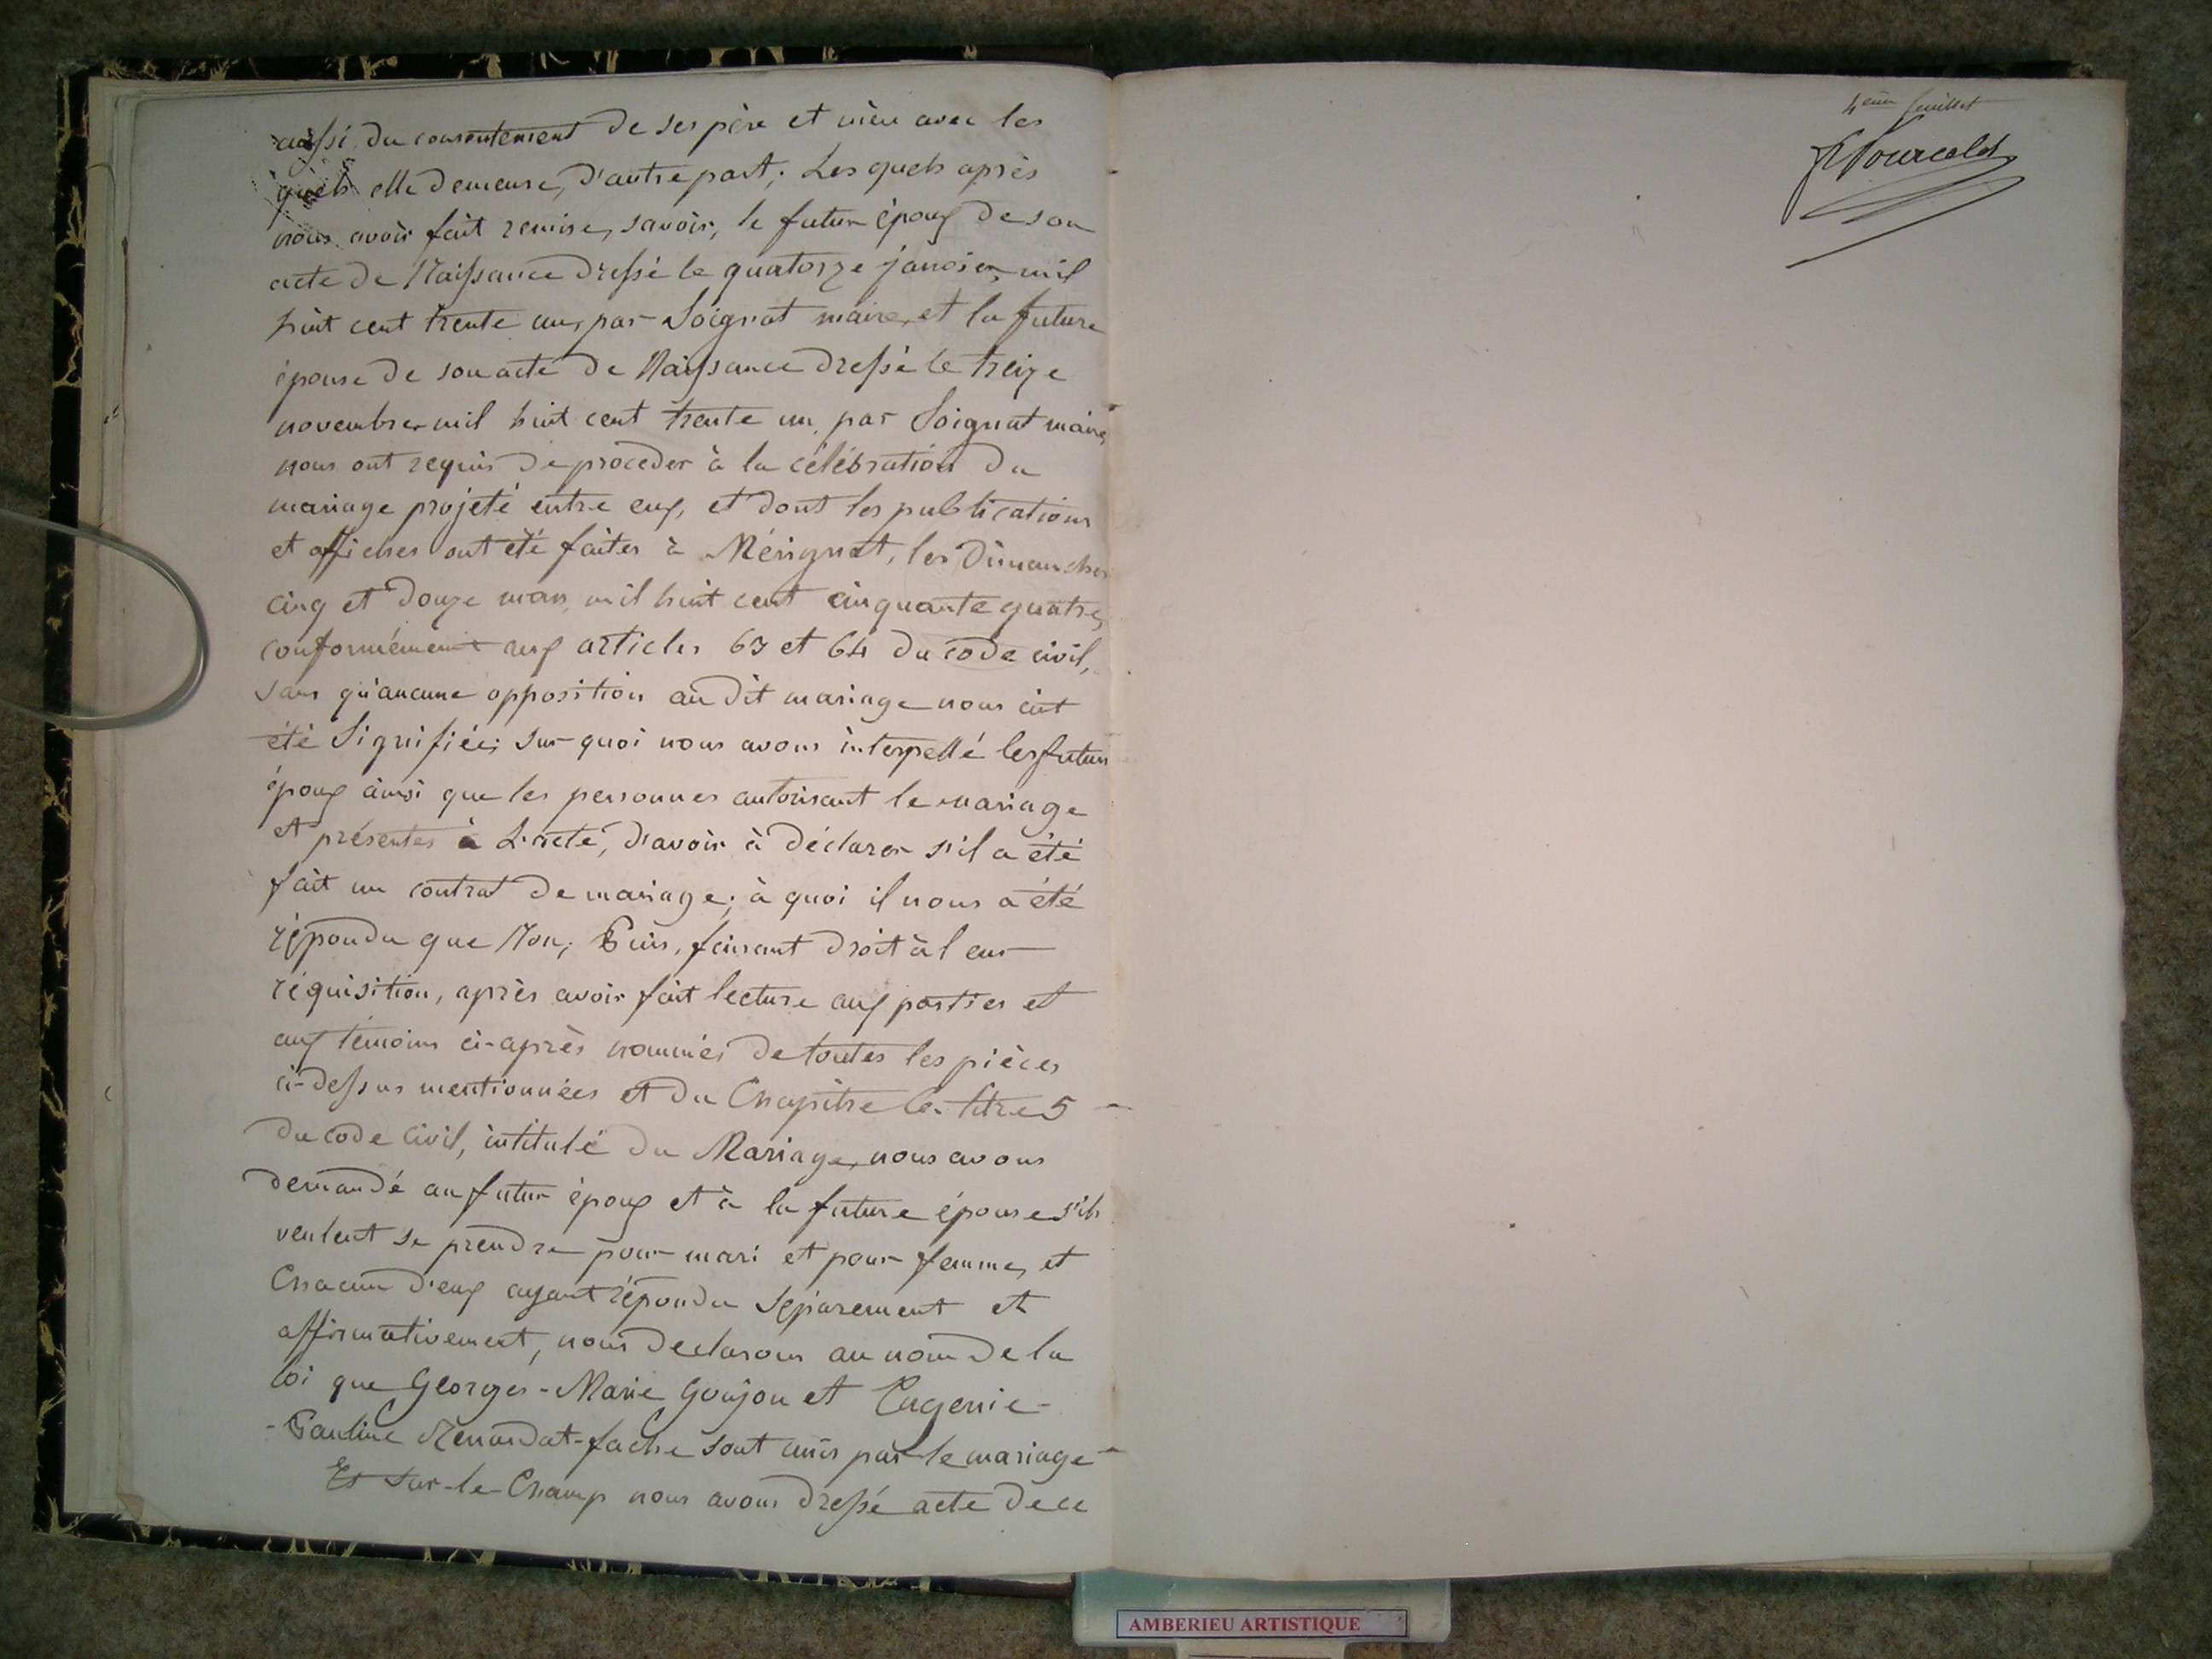 aussi du consentement de ses père et mère avec les
quels elle demeure, d'autre part; Les quels après
nous avoir fait remise, savoir, le futur époux de son
acte de Naissance dressé le quatorze janvier mil
huit cent trente un, par Soignat maire, et la future
épouse de son acte de Naissance dressé le treize
novembre mil huit cent trente un par Soignat maire,
nous ont requis de procéder à la célébration du
mariage projeté entre eux, et dont les publications
et affiches ont été faites à Mérignat, les Dimanches
cinq et douze mars mil huit cent cinquante quatre,
conformément aux articles 63 et 64 du code civil,
sans qu'aucune opposition au dit mariage nous ait
été signifiée; sur quoi nous avons interpellé les futurs
époux ainsi que les personnes autorisant le mariage
et présentes à L'acte, d'avoir à déclarer s'il a été
fait un contrat de mariage; à quoi il nous a été
répondu que Non; Puis, faisant droit à leur
réquisition, après avoir fait lecture aux parties et
aux témoins ci-après nommés de toutes les pièces
ci-dessus mentionnées et du Chapitre 6. titre 5
du code Civil, intitulé du Mariage, nous avons
demandé au futur époux et à la future épouse s'ils
veulent se prendre pour mari et pour femme, et
Chacun d'eux ayant répondu séparement et
affirmativement, nous declarons au nom de la
loi que Georges-Marie Goujon et Eugenie-
-Pauline Renaudat-fache sont unis par le mariage
Et sur-le-Champ nous avons dressé acte de ce
4ème feuillet
AMBERIEU ARTISTIQUE